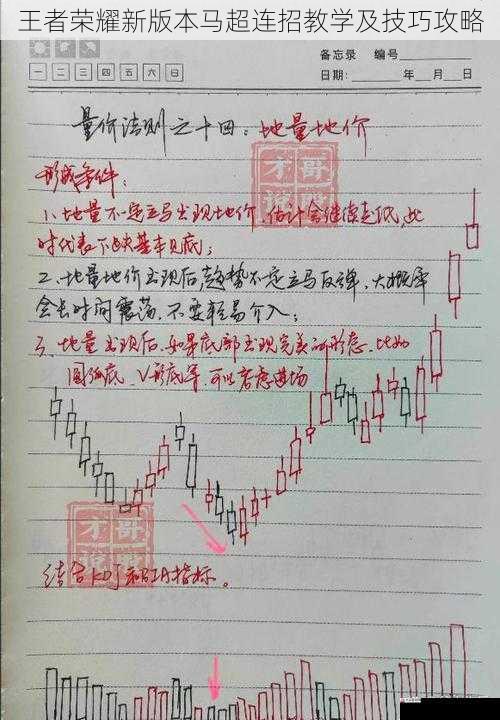 王者荣耀新版本马超连招教学及技巧攻略
备忘录 编号
一 二 三 四 五 六 日 日期: 年 月 日
量价法则之十四:地量地价
形成条件:
1、地量不一定立马出现地价,估计会继续走低,此
时代表下跌基本见底;
2、地量地价出现后,趋势不一定立马反弹,大概率
会长时间震荡,不要轻易介入;
3、地量出现后,如果底部出现完美的形态,比如
圆弧底、V形底等,可以考虑进场
才哥说股
才哥说股
结合KDJ和BIAS指标。